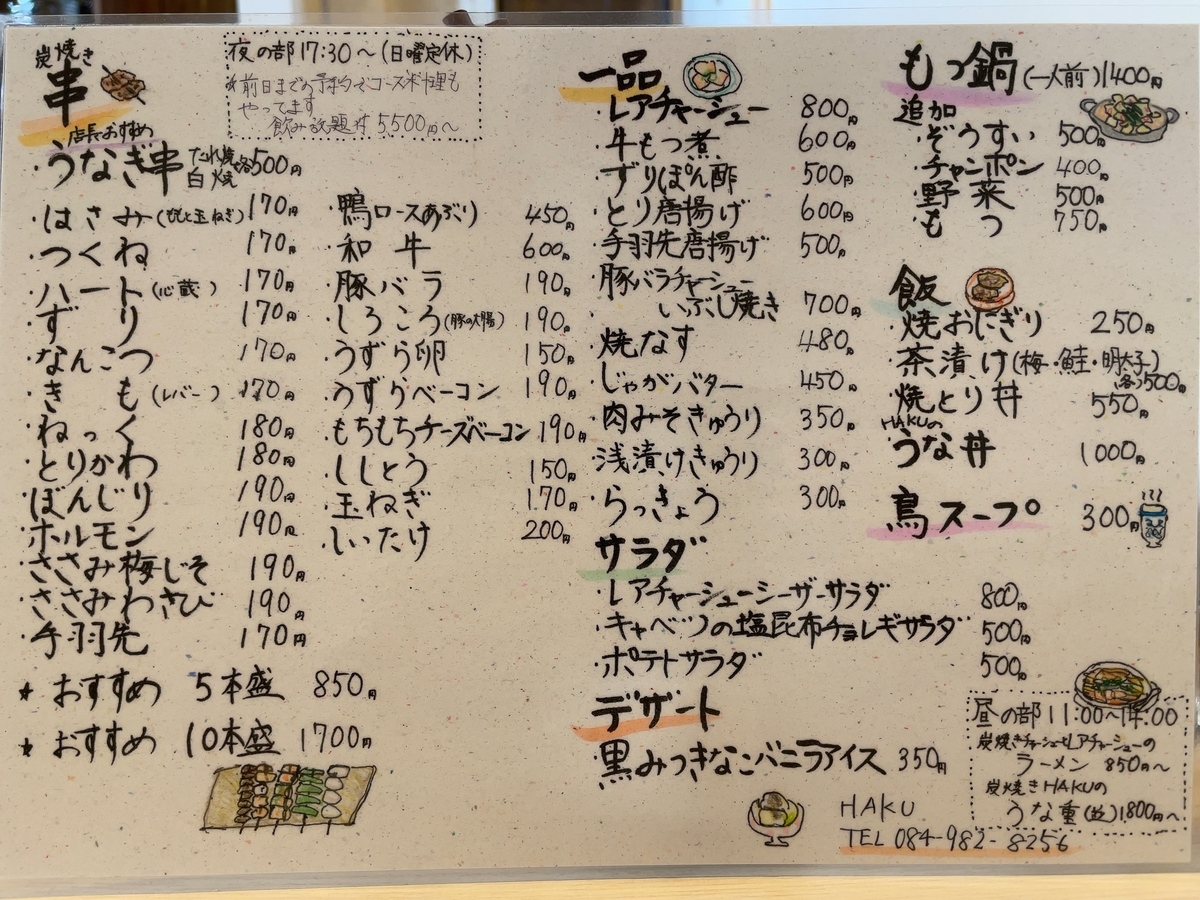 炭焼き
串
店長おすすめ
・うなぎ串 たれ焼 白焼 各500円
・はさみ(ひじと玉ねぎ) 170円
・つくね 170円
・ハート(心蔵) 170円
・ずり 170円
・なんこつ 170円
・きも(レバー) 170円
・ねっく 180円
・とりかわ 180円
・ぼんじり 190円
・ホルモン 190円
・ささみ梅じそ 190円
・ささみわさび 190円
・手羽先 170円
★ おすすめ 5本盛 850円
★ おすすめ 10本盛 1700円
夜の部17:30〜(日曜定休)
*前日までの予約でコース料理も
やってます
飲み放題付 5,500円〜
・鴨ロースあぶり 450円
・和牛 600円
・豚バラ 190円
・しろころ(豚の大腸) 190円
・うずら卵 150円
・うずらベーコン 190円
・もちもちチーズベーコン 190円
・ししとう 150円
・玉ねぎ 170円
・しいたけ 200円
一品
・レアチャーシュー 800円
・牛もつ煮 600円
・ずりぽん酢 500円
・とり唐揚げ 600円
・手羽先唐揚げ 500円
・豚バラチャーシュー
いぶし焼き 700円
・焼なす 480円
・じゃがバター 450円
・肉みそきゅうり 350円
・浅漬けきゅうり 300円
・らっきょう 300円
サラダ
・レアチャーシューシーザーサラダ 800円
・キャベツの塩昆布チョレギサラダ 500円
・ポテトサラダ 500円
デザート
黒みつきなこバニラアイス 350円
もつ鍋(一人前)1400円
追加
・ぞうすい 500円
・チャンポン 400円
・野菜 500円
・もつ 750円
飯
・焼おにぎり 250円
・茶漬け(梅・鮭・明太子)
(各)500円
・焼とり丼 550円
HAKUの
・うな丼 1000円
鳥スープ 300円
昼の部11:00〜14:00
炭焼きチャーシューとレアチャーシューの
ラーメン 850円〜
炭焼きHAKUの
うな重(並)1,800円〜
HAKU
TEL 084-982-8256